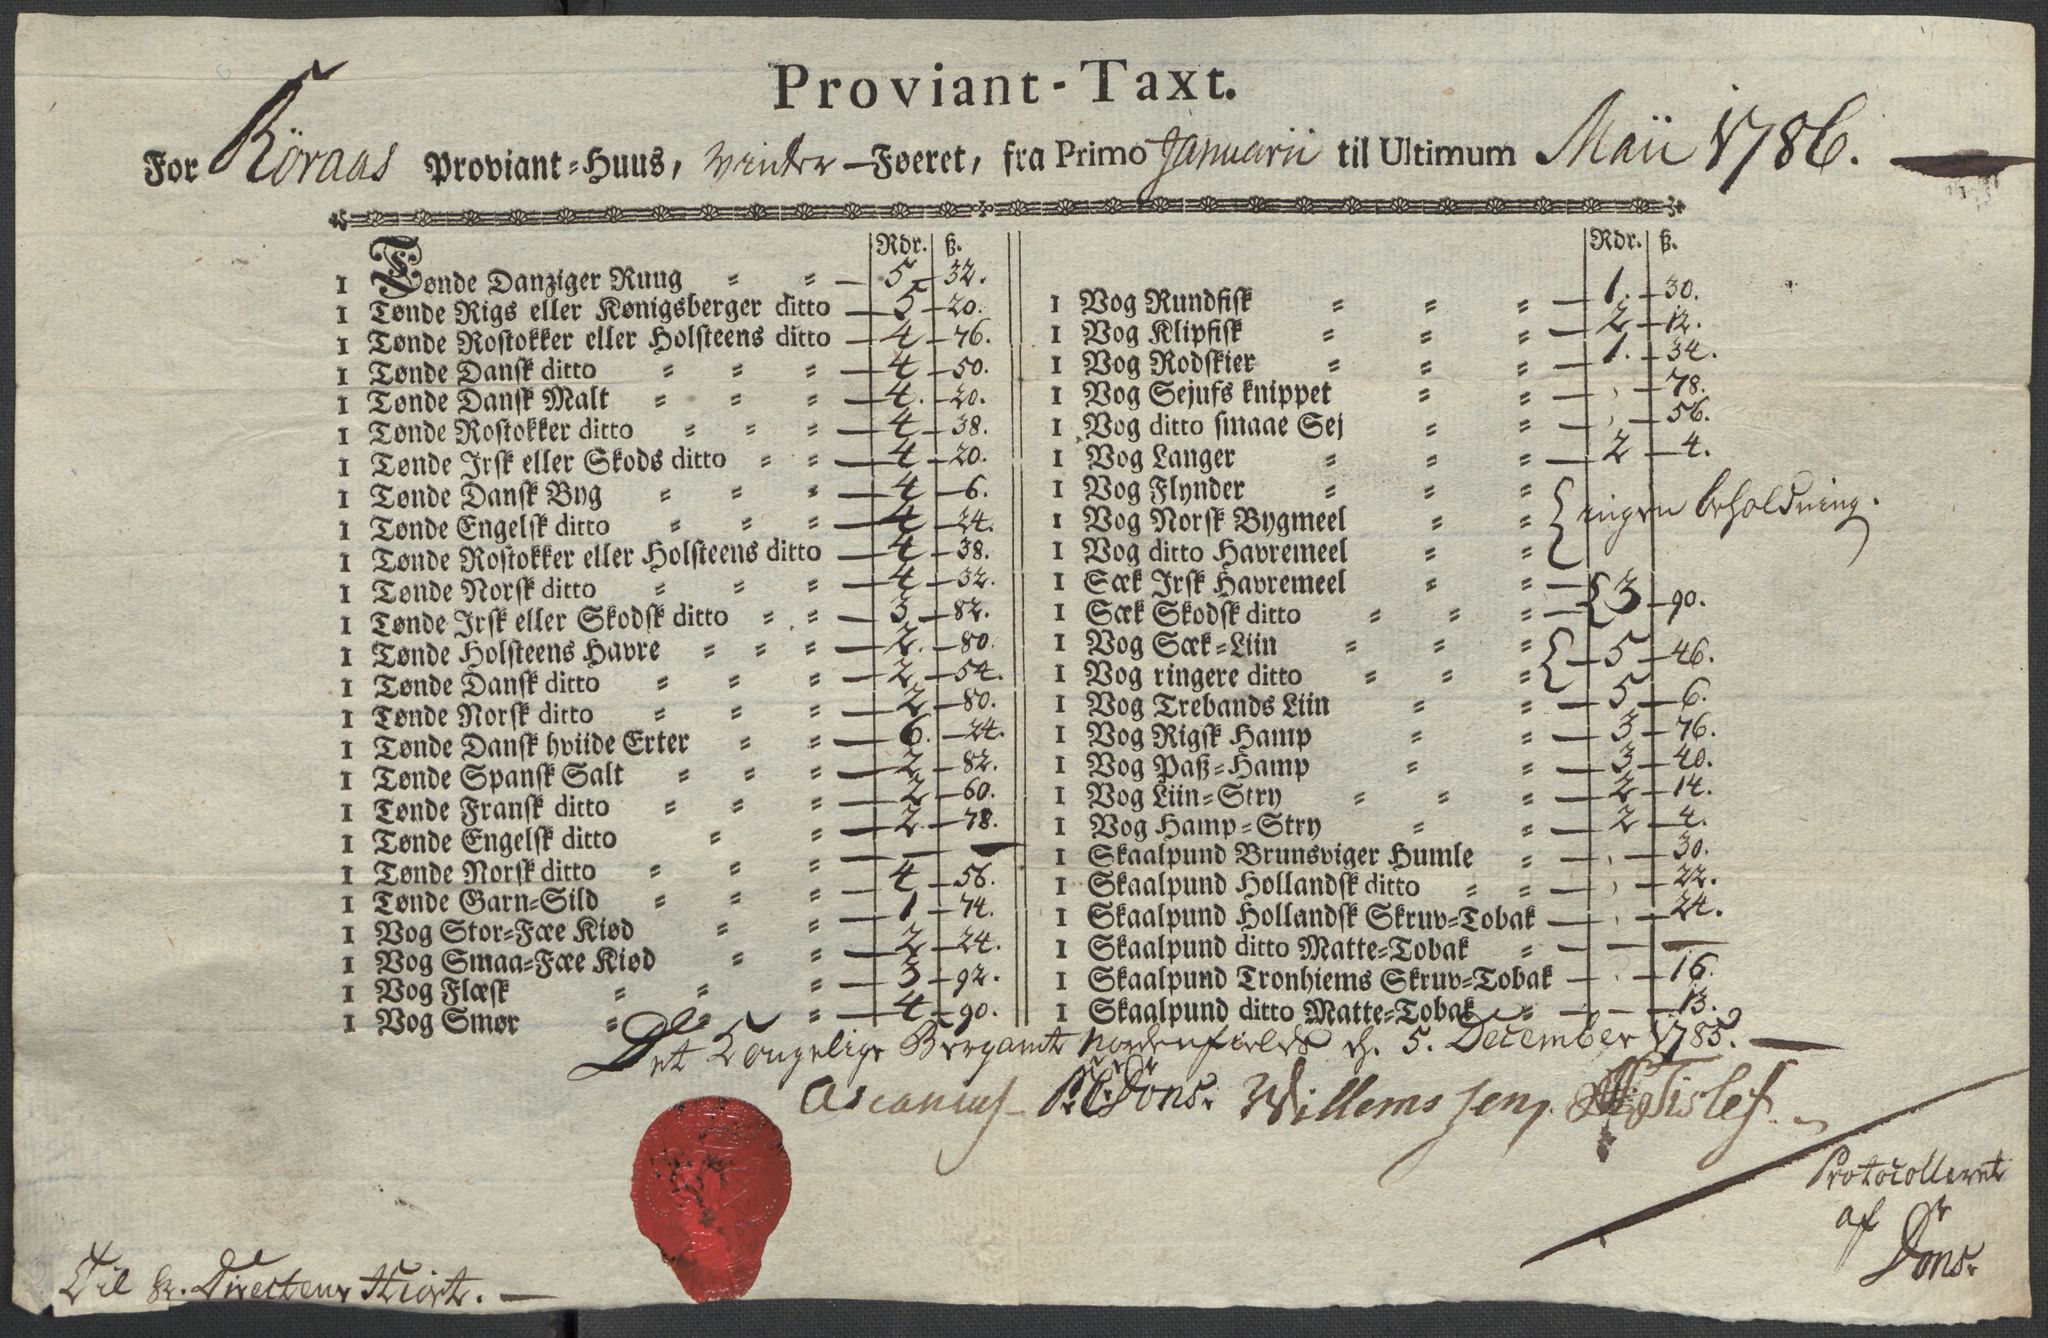 Proviant-Taxt.
For Röraas Proviant-Huus, Vinter-Føeret, fra Primo Januarii til Ultimum Maii 1786.
Rdr. ß.
1 Tønde Danziger Ruug 5 - 32.
1 Tønde Rigs eller Kønigsberger ditto 5 - 20.
1 Tønde Rostokker eller Holsteens ditto 4 - 76.
1 Tønde Dansk ditto 4 - 50.
1 Tønde Dansk Malt 4. - 20.
1 Tønde Rostokker ditto 4 - 38.
1 Tønde Irsk eller Skods ditto 4 - 20.
1 Tønde Dansk Byg 4 - 6.
1 Tønde Engelsk ditto 4 - 24.
1 Tønde Rostokker eller Holsteens ditto 4 - 38.
1 Tønde Norsk ditto 4 - 32.
1 Tønde Irsk eller Skodsk ditto 3 - 82.
1 Tønde Holsteens Havre 2. - 80.
1 Tønde Dansk ditto 2 - 54.
1 Tønde Norsk ditto 2 - 80.
1 Tønde Dansk hviide Erter 6. - 24.
1 Tønde Spansk Salt 2 - 82.
1 Tønde Fransk ditto 2 - 60.
1 Tønde Engelsk ditto 2. - 78.
1 Tønde Norsk ditto — —
1 Tønde Garn-Sild 4 - 56.
1 Vog Stor-Fæe Kiød 1 - 74.
1 Vog Smaa-Fæe Kiød 2 - 24.
1 Vog Flæsk 3 - 92.
1 Vog Smør 4 - 90.
Rdr. ß.
1 Vog Rundfisk 1. - 30.
1 Vog Klipfisk 2 - 12.
1 Vog Rodskier 1. - 34.
1 Vog Sejufs knippet - 78.
1 Vog ditto smaae Sej - 56.
1 Vog Langer 2 - 4.
1 Vog Flynder
1 Vog Norsk Bygmeel { ingen beholdning.
1 Vog ditto Havremeel
1 Sæk Irsk Havremeel
1 Sæk Skodsk ditto { 3 - 90.
1 Vog Sæk-Liin
1 Vog ringere ditto { 5 - 46.
1 Vog Trebands Liin 5 - 6.
1 Vog Rigsk Hamp 3 - 76.
1 Vog Paß-Hamp 3 - 40.
1 Vog Liin-Stry 2 - 14.
1 Vog Hamp-Stry 2 - 4.
1 Skaalpund Brunsviger Humle - 30.
1 Skaalpund Hollandsk ditto - 22.
1 Skaalpund Hollandsk Skruv-Tobak - 24.
1 Skaalpund ditto Matte-Tobak — —
1 Skaalpund Tronhiems Skruv-Tobak - 16.
1 Skaalpund ditto Matte-Tobak - 13.
Det Kongelige Bergamt Nordenfields d. 5. December 1785.
Ascanius P. C. Dons. Willems Jens. Fislef.
Protocolleret
af
Dons.
Til Hr. Directeur Hiort.